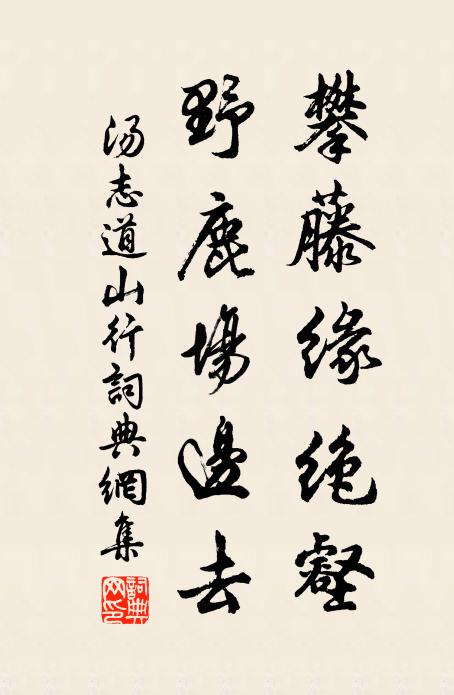 攀藤缘绝壑
野鹿場邊去
汤志道山行詞典網集
詞典网印